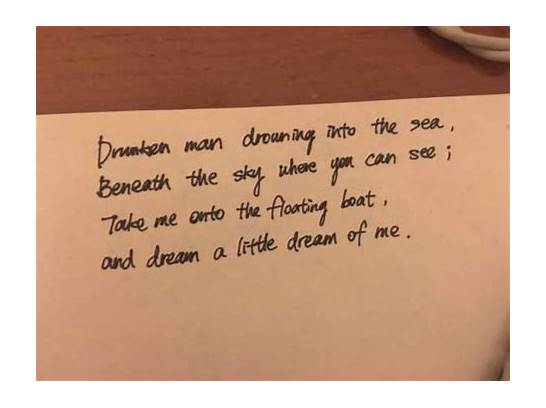 Drunken man drowning into the sea,
Beneath the sky where you can see;
Take me onto the floating boat,
and dream a little dream of me.